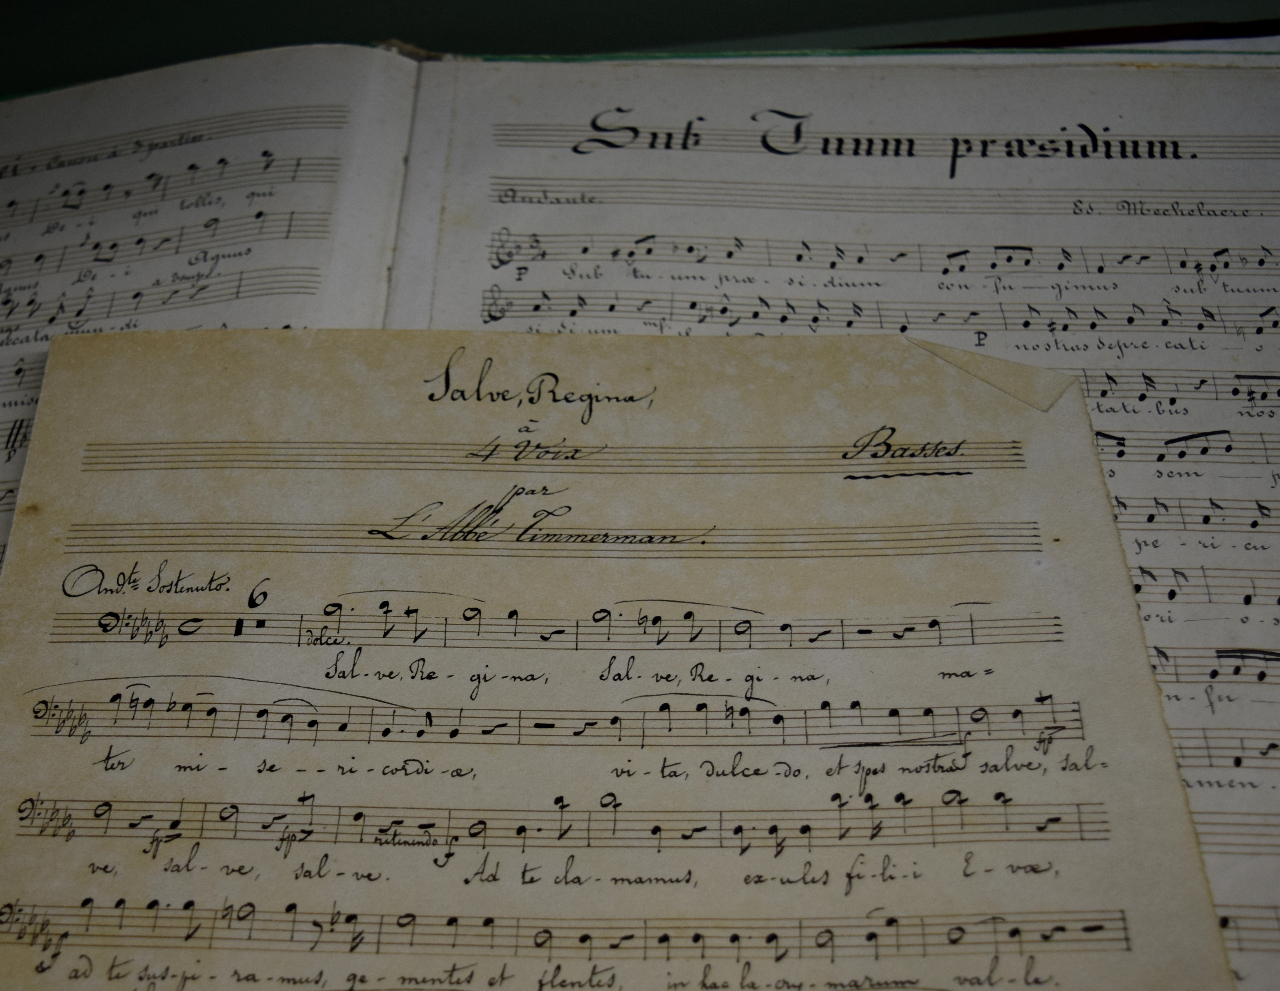 Canon à 3 parties.
De - i qui tollis, qui
De - i Agnus
Sub Tuum præsidium.
Andante. Ed. Mechelaere.
P Sub tu - um præ - si - dium con - fu - gimus sub tuum
si - di - um mf. P nostras depre - cati - o
tati - bus nos
sem - p
pe - ri - cu
ori - o - s
men.
Salve, Regina,
à
4 Voix Basses.
par
L'Abbé Timmerman.
And.te Sostenuto. 6
dolce.
Sal - ve, Re - gi - na, Sal - ve, Re - gi - na, ma=
ter mi - se - - ri - cordi - æ, vi - ta, dulce - do, et spes nostra salve, sal=
fp fp ritenendo f
ve, sal - ve, sal - ve. Ad te cla - mamus, ex - ules fi - li - i E - væ,
ad te sus - pi - ra - mus, ge - mentes et flentes, in hac la - cry - marum val - le.